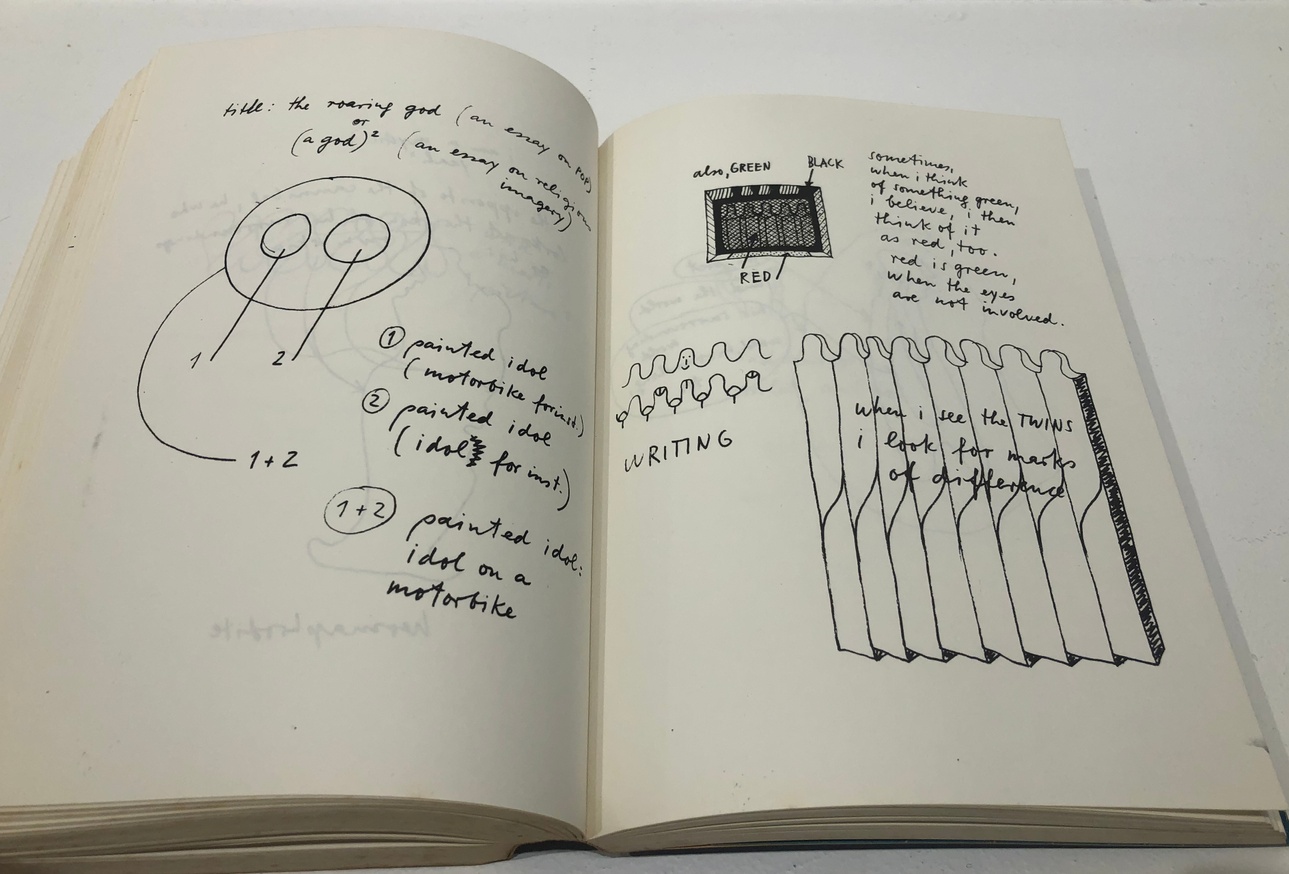 title: the roaring god (an essay on POP)
or
(a god)² (an essay on religious
imagery)
1 2
1 + 2
① painted idol
(motorbike for inst.)
② painted idol
(idol for inst.)
1 + 2 painted idol:
idol on a
motorbike
hermaphrodite
also, GREEN BLACK
RED
sometimes,
when i think
of something green,
i believe, i then
think of it
as red, too.
red is green,
when the eyes
are not involved.
WRITING
when i see the TWINS
i look for marks
of difference